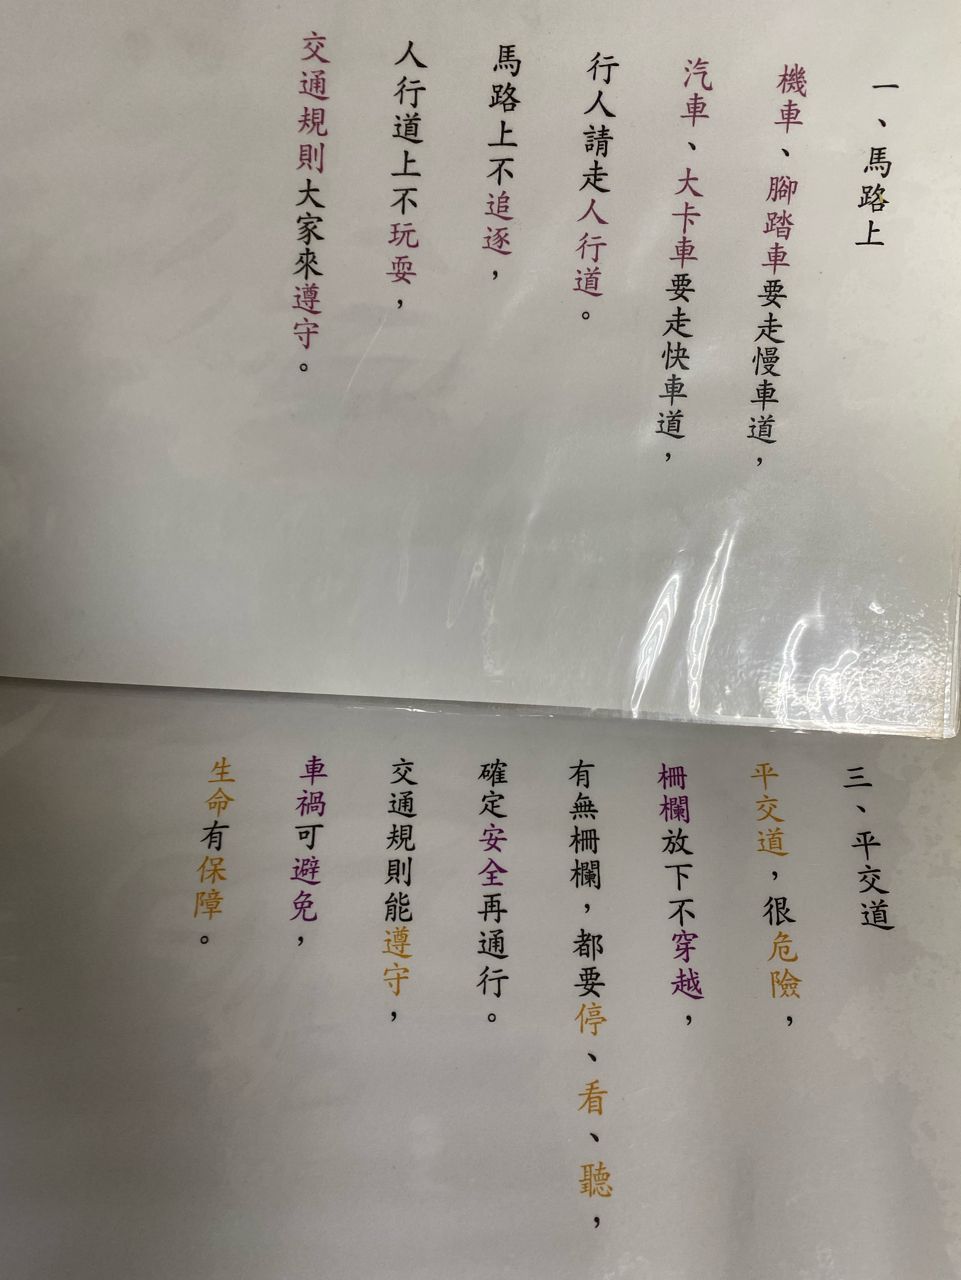 一、馬路上
機車、腳踏車要走慢車道，
汽車、大卡車要走快車道，
行人請走人行道。
馬路上不追逐，
人行道上不玩耍，
交通規則大家來遵守。
三、平交道
平交道，很危險，
柵欄放下不穿越，
有無柵欄，都要停、看、聽，
確定安全再通行。
交通規則能遵守，
車禍可避免，
生命有保障。